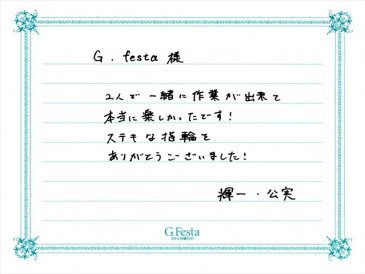 G. festa 様
2人で一緒に作業が出来て
本当に楽しかったです!
ステキな指輪を
ありがとうございました!
輝一・公実
G.Festa
DIAMOND